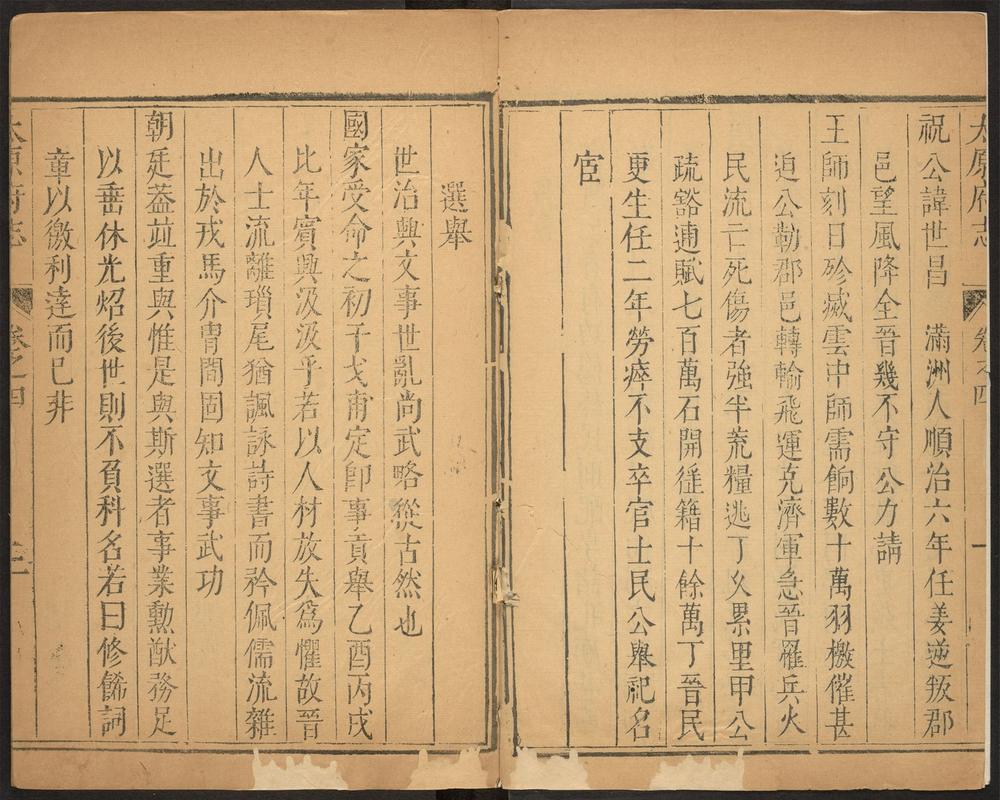 太原府志 卷之四 一
祝公諱世昌 滿洲人順治六年任姜逆叛郡
邑望風降全晉幾不守公力請
王師刻日殄滅雲中師需餉數十萬羽檄催甚
迫公勒郡邑轉輸飛運克濟軍急晉罹兵火
民流亡死傷者強半荒糧逃丁久累里甲公
疏豁逋賦七百萬石開徒籍十餘萬丁晉民
更生任二年勞瘁不支卒官士民公舉祀名
宦
選舉
世治興文事世亂尚武略從古然也
國家受命之初干戈甫定卽事貢舉乙酉丙戌
比年賓興汲汲乎若以人材放失爲懼故晉
人士流離瑣尾猶諷詠詩書而衿佩儒流雜
出於戎馬介冑間固知文事武功
朝廷葢竝重與惟是與斯選者事業勲猷務足
以垂休光炤後世則不負科名若曰修餙詞
章以徼利達而已非
太原府志 卷之四